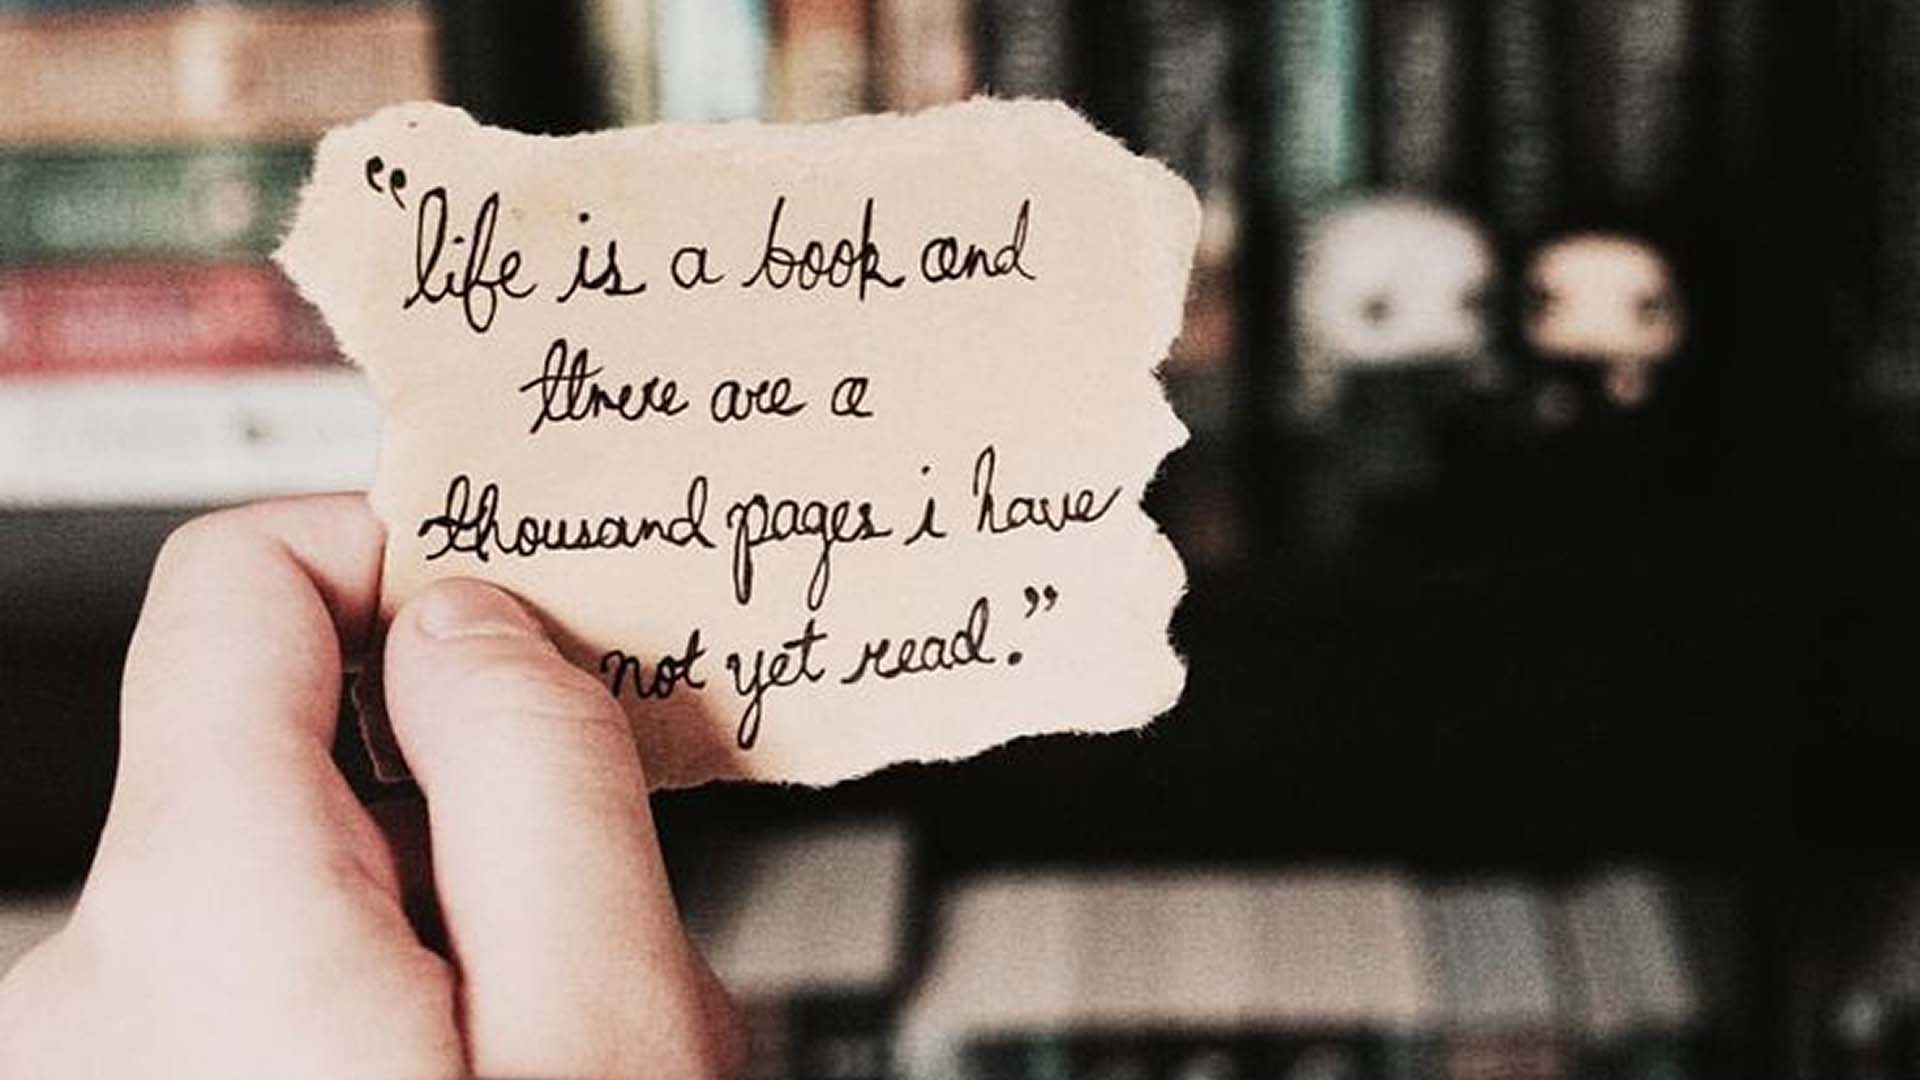 “life is a book and
there are a
thousand pages i have
not yet read.”